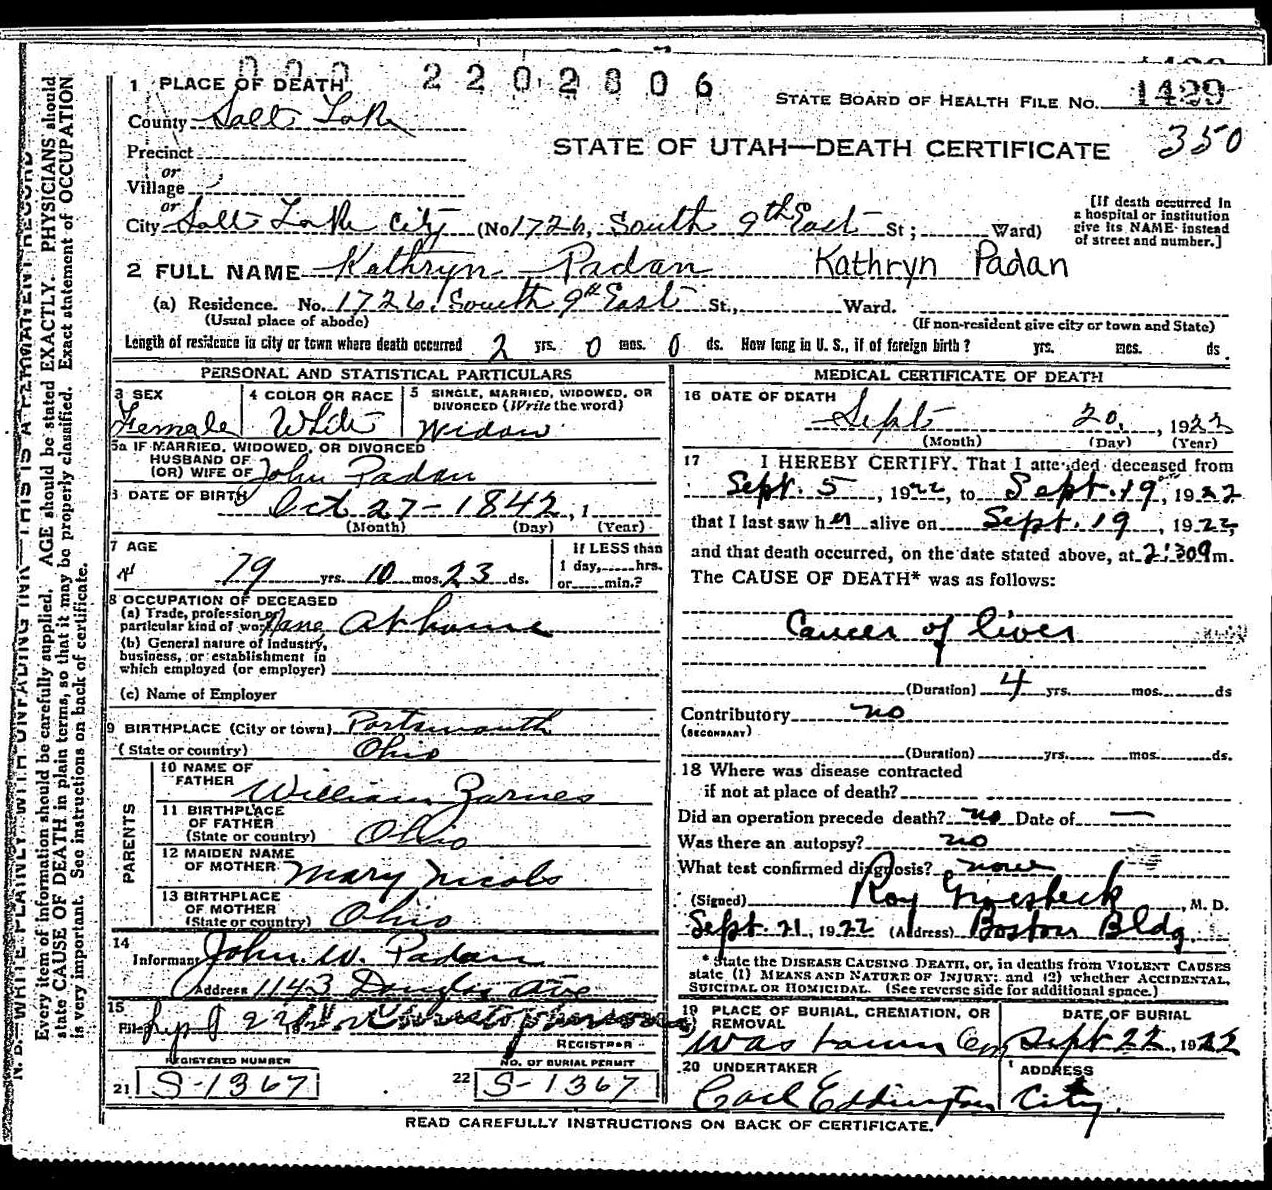 000 2202806
1 PLACE OF DEATH
STATE BOARD OF HEALTH FILE NO. 1429
County Salt Lake
350
STATE OF UTAH—DEATH CERTIFICATE
Precinct
or
Village
or
City Salt Lake City (No 1726, South 9th East St; Ward)
[If death occurred in
a hospital or institution
give its NAME instead
of street and number.]
2 FULL NAME Kathryn Padan Kathryn Padan
(a) Residence. No. 1726. South 9th East St., Ward.
(Usual place of abode) (If non-resident give city or town and State)
Length of residence in city or town where death occurred 2 yrs. 0 mos. 0 ds. How long in U. S., if of foreign birth? yrs. mos. ds.
PERSONAL AND STATISTICAL PARTICULARS
3 SEX
Female
4 COLOR OR RACE
White
5 SINGLE, MARRIED, WIDOWED, OR
DIVORCED (Write the word)
Widow
5a IF MARRIED, WIDOWED, OR DIVORCED
HUSBAND OF
(OR) WIFE OF John Padan
6 DATE OF BIRTH Oct 27-1842, 1
(Month) (Day) (Year)
7 AGE
79 yrs. 10 mos. 23 ds.
If LESS than
1 day, hrs.
or min.?
8 OCCUPATION OF DECEASED
(a) Trade, profession or
particular kind of work None At home
(b) General nature of industry,
business, or establishment in
which employed (or employer)
(c) Name of Employer
9 BIRTHPLACE (City or town) Portsmouth
(State or country) Ohio
PARENTS
10 NAME OF
FATHER William Barnes
11 BIRTHPLACE
OF FATHER
(State or country) Ohio
12 MAIDEN NAME
OF MOTHER Mary Nicols
13 BIRTHPLACE
OF MOTHER
(State or country) Ohio
14
Informant John. W. Padan
Address 1143 Douglas Ave
15
Filed 22
REGISTRAR
REGISTERED NUMBER
21 S-1367
NO. OF BURIAL PERMIT
22 S-1367
MEDICAL CERTIFICATE OF DEATH
16 DATE OF DEATH
Sept 20, 1922
(Month) (Day) (Year)
17 I HEREBY CERTIFY, That I attended deceased from
Sept. 5, 1922, to Sept. 19, 1922
that I last saw her alive on Sept. 19, 1922,
and that death occurred, on the date stated above, at 2:30 a m.
The CAUSE OF DEATH* was as follows:
Cancer of liver
(Duration) 4 yrs. mos. ds
Contributory no
(SECONDARY)
(Duration) yrs. mos. ds.
18 Where was disease contracted
if not at place of death?
Did an operation precede death? no Date of —
Was there an autopsy? no
What test confirmed diagnosis? none
(Signed) Roy Groesbeck, M. D.
Sept. 21, 1922 (Address) Boston Bldg.
* State the DISEASE CAUSING DEATH, or, in deaths from VIOLENT CAUSES
state (1) MEANS AND NATURE OF INJURY; and (2) whether ACCIDENTAL,
SUICIDAL OR HOMICIDAL. (See reverse side for additional space.)
19 PLACE OF BURIAL, CREMATION, OR
REMOVAL
DATE OF BURIAL
Sept 22, 1922
20 UNDERTAKER
Carl Eddington
ADDRESS
City.
READ CAREFULLY INSTRUCTIONS ON BACK OF CERTIFICATE.
N. B.—WRITE PLAINLY WITH UNFADING INK—THIS IS A PERMANENT RECORD
Every item of information should be carefully supplied. AGE should be stated EXACTLY. PHYSICIANS should
state CAUSE OF DEATH in plain terms, so that it may be properly classified. Exact statement of OCCUPATION
is very important. See instructions on back of certificate.